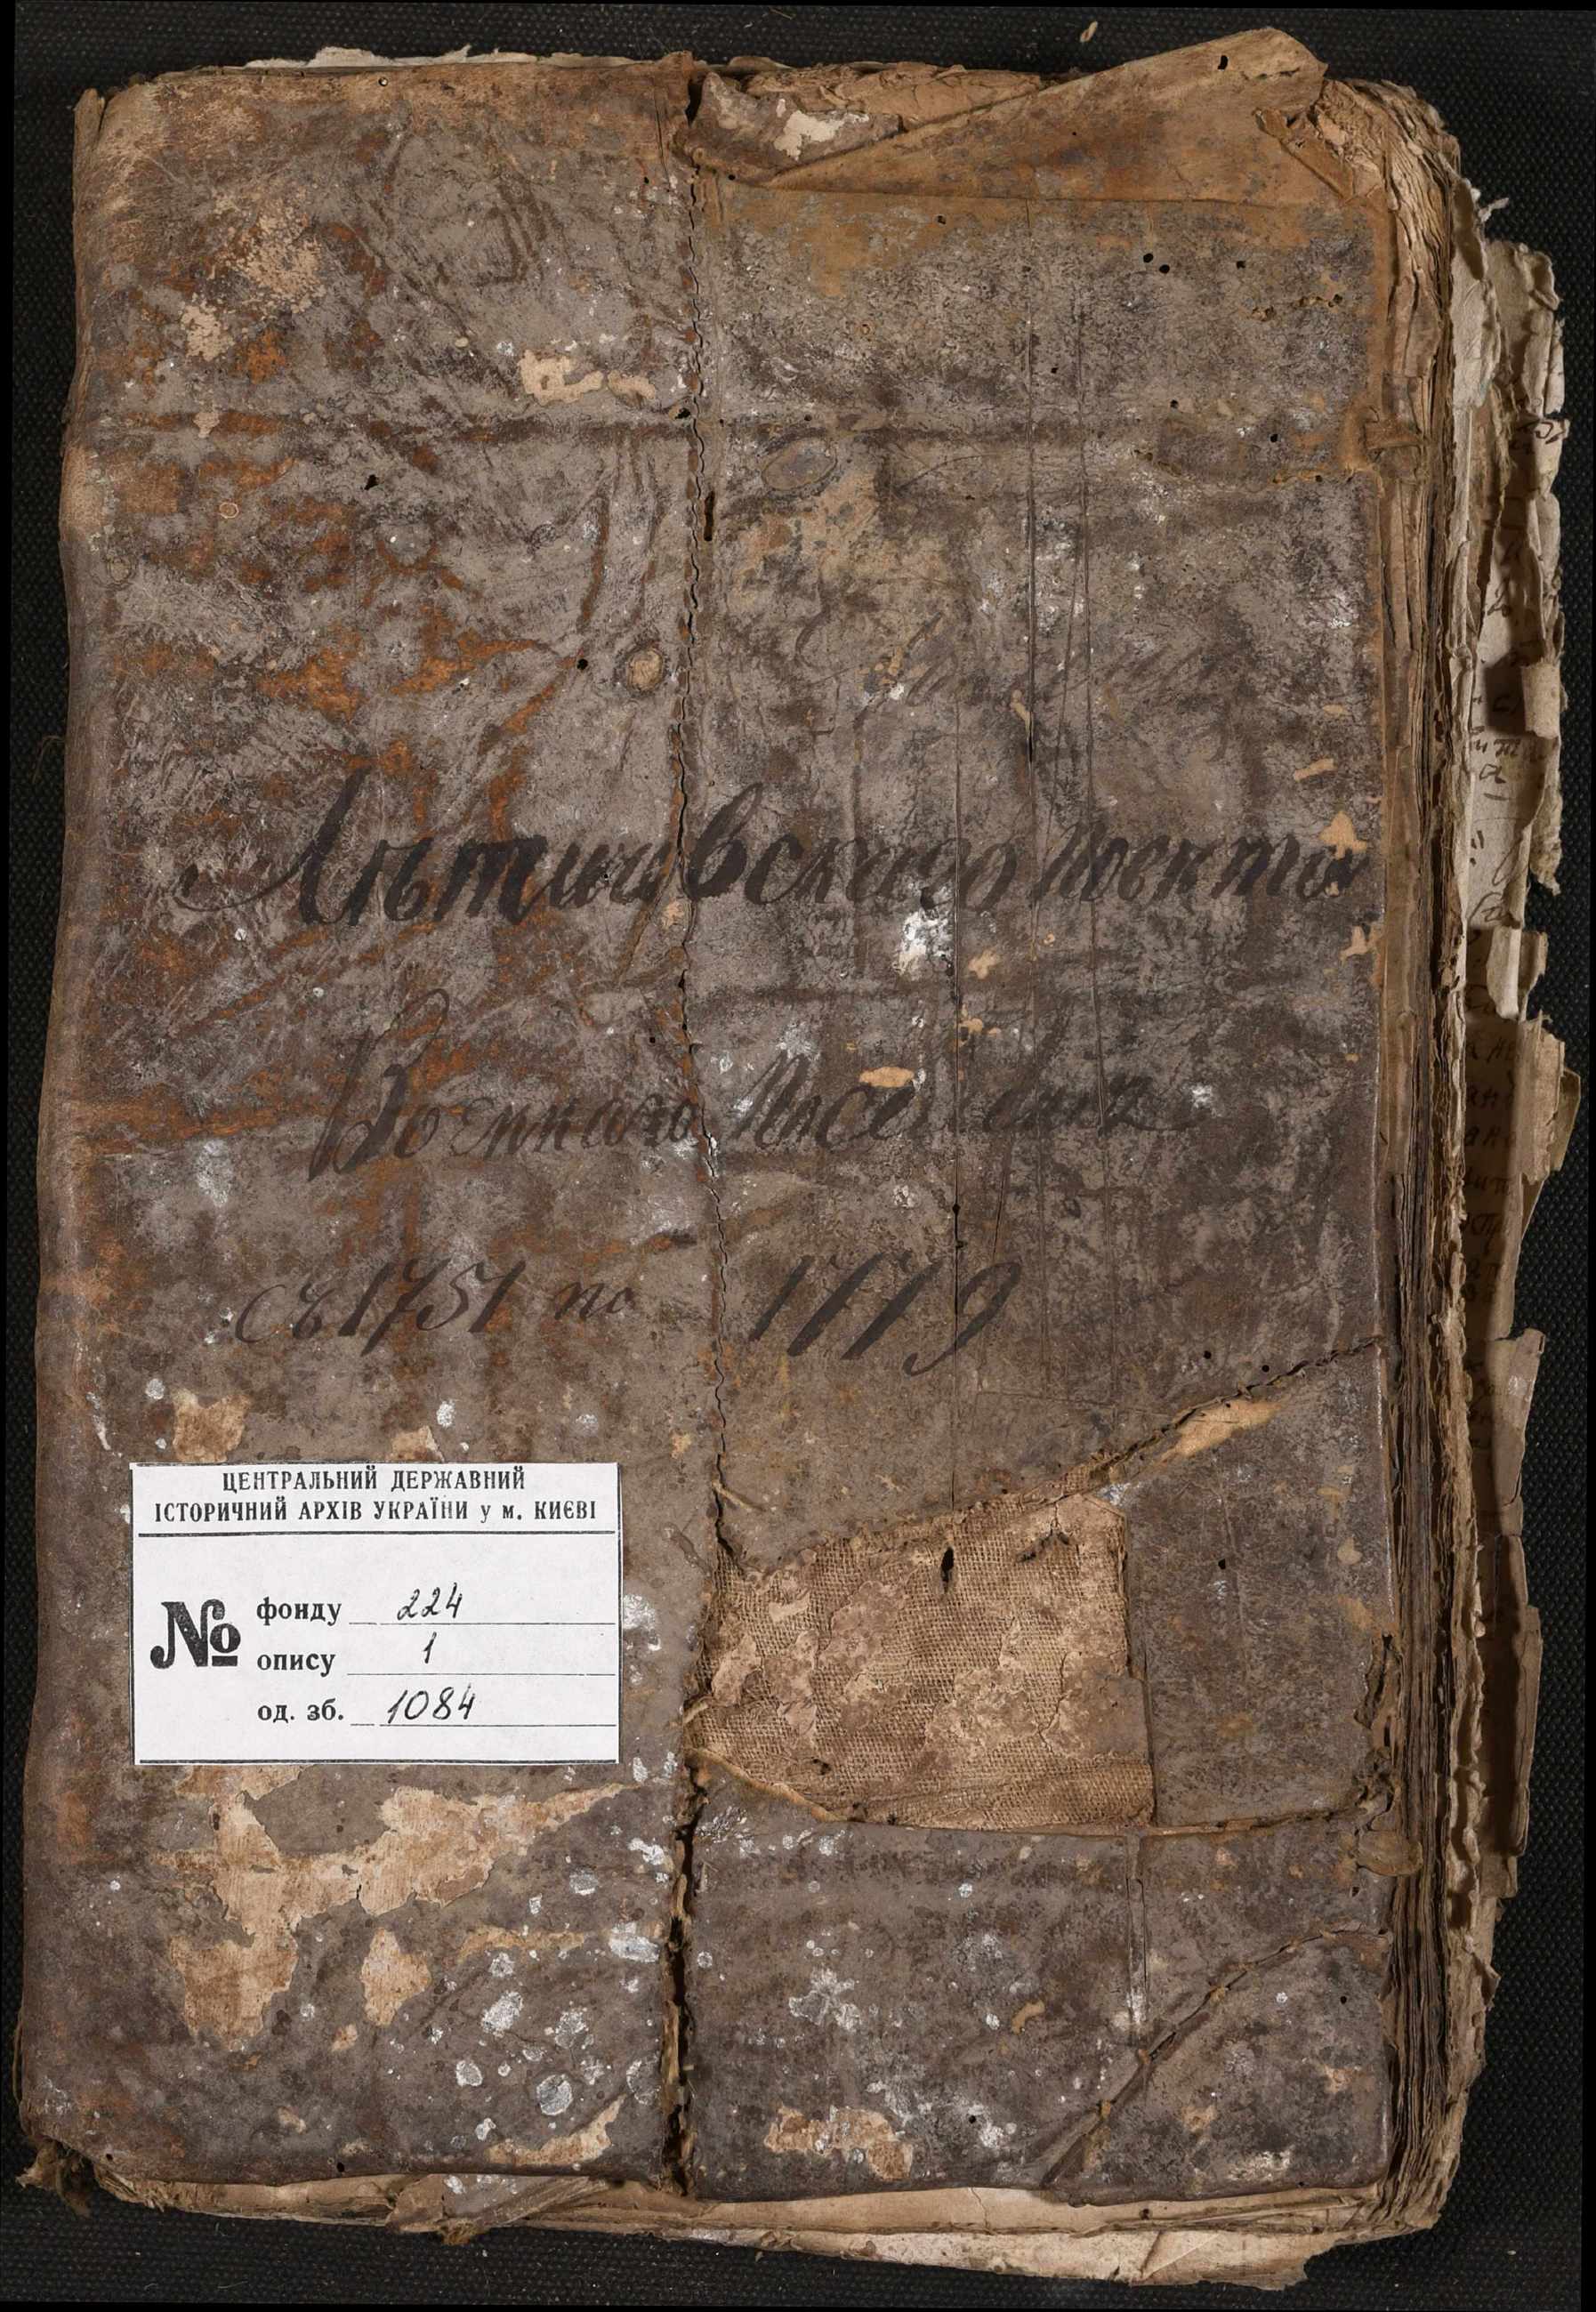 Лѣтичевскаго
Военнаго Поселенія
съ 1751 по 1779
ЦЕНТРАЛЬНИЙ ДЕРЖАВНИЙ
ІСТОРИЧНИЙ АРХІВ УКРАЇНИ у м. КИЄВІ
№
фонду 224
опису 1
од. зб. 1084